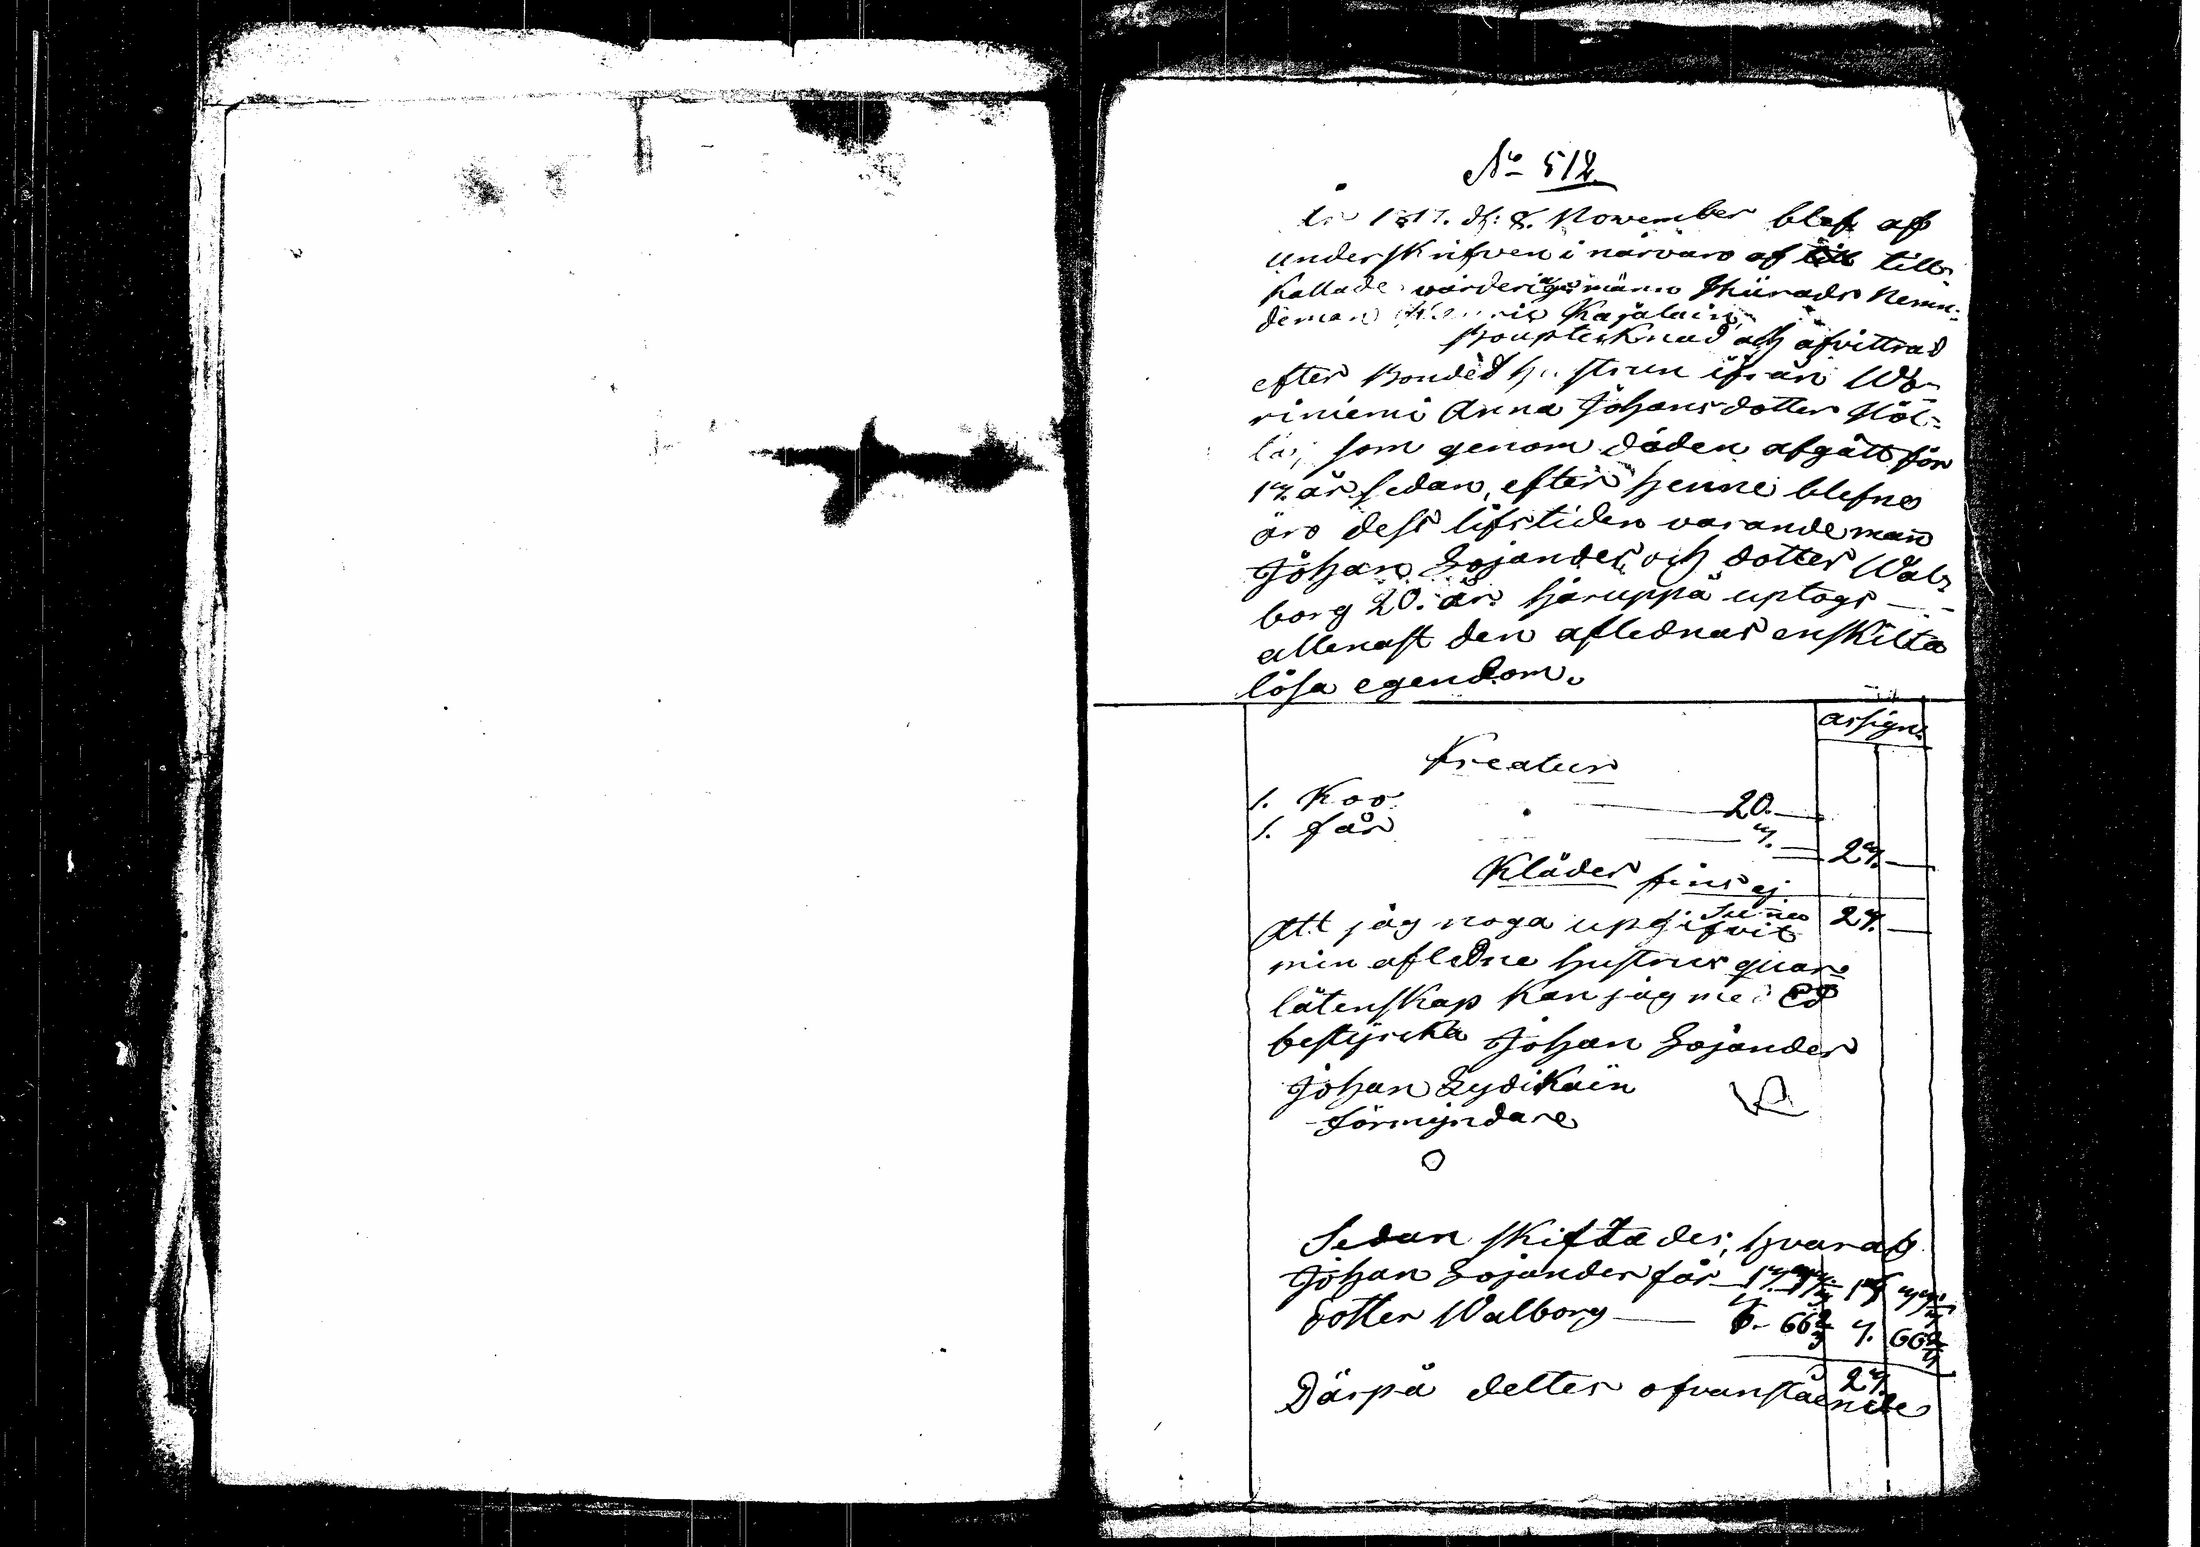 No 512
År 1817. d: 8. November blef af
underskrifven i närvaro af till-
kallade värderingsmänn Härads Nemn:
deman Kajalain
Bouptecknad och afvittrad
efter Bonde hustrun ifrån Wo-
riniemi Anna Johansdotter Höl-
lä, som genom döden afgått för
14 år sedan, efter henne blefne
äro dess lifstiden varande man
Johan Lojander och dotter Wal-
borg 20. år. häruppå uptogs
allenast den aflednas enskilta
lösa egendom.
assign.
Kreatur
1. Koo 20.
1. får 4. 24.
Kläder fins ej
Summa 24.
Att jag noga upgifvit
min afledne hustrus quar-
låtenskap kan jag med Ed
bestyrcka Johan Lojander
Johan Lydikain
förmyndare
Sedan skiftades, hvaraf
Johan Lojander får
dotter Walborg 66 2/3
24.
Därpå deltes ofvanstående